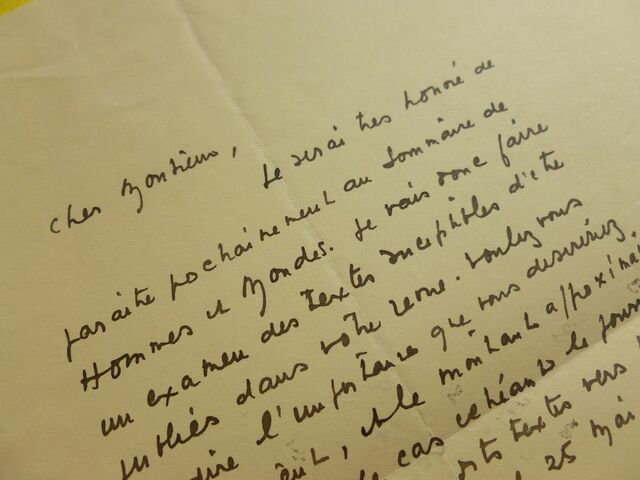 Cher Monsieur,
Je serai très honoré de
paraître prochainement au sommaire de
Hommes et Mondes. Je vais donc faire
un examen des textes susceptibles d'être
publiés dans votre revue. Voulez vous
dire l'importance que vous desirerez,
et le montant approximat
cas échéant le
textes vers
25 Mai